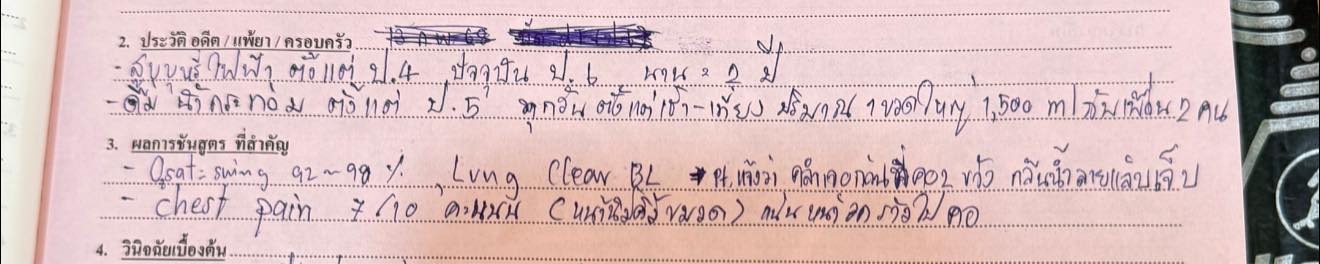 2. ประวัติ อดีต / แพ้ยา / ครอบครัว
- สูบบุหรี่ไฟฟ้า ตั้งแต่ ป.4 ปัจจุบัน ป.6 นาน = 2 ปี
- ดื่ม น้ำกระท่อม ตั้งแต่ ป.5 ทุกวัน ตั้งแต่เช้า-เที่ยง ปริมาณ 1 ขวดใหญ่ 1,500 ml กับเพื่อน 2 คน
3. ผลการชันสูตร ที่สำคัญ
- O2sat = swing 92~98 % , Lung Clear BL pt. แจ้งว่า คลำเจอก้อนที่คอ ขวา กลืนน้ำลายแล้วเจ็บ
- chest pain 7/10 คะแนน (หน้านิ่วคิ้วขมวด) แน่นหน้าอก ร้าวไปคอ
4. วินิจฉัยเบื้องต้น